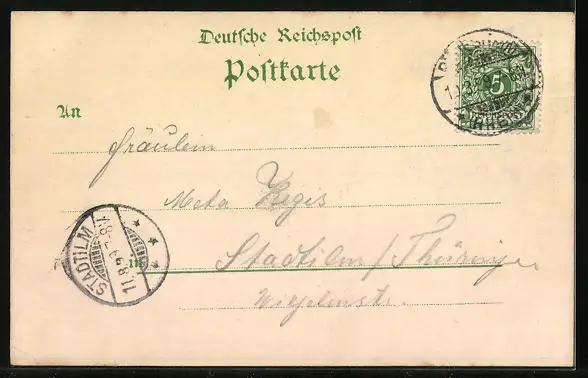 Deutsche Reichspost
Postkarte
An
Fräulein
Meta
Stadtilm / Thüringen
in
STADTILM
11.8.99
5